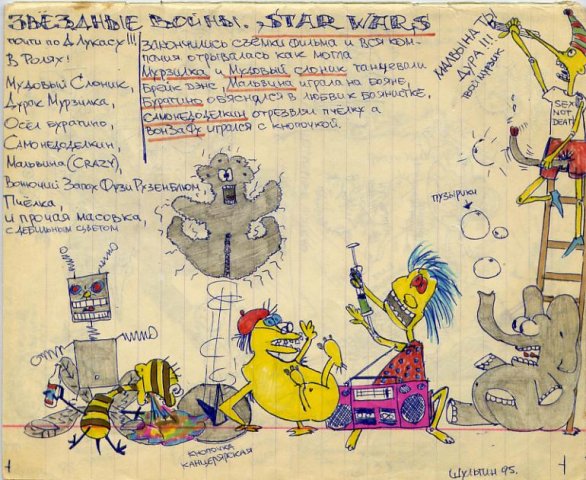 ЗВЁЗДНЫЕ ВОЙНЫ. „STAR WARS
почти по Д. Лукасу!!!
В Ролях:
Мудовый Слоник,
Дурак Мурзилка,
Осёл Буратино,
Самонедоделкин,
Мальвина (CRAZY),
Вонючий Запах Фузи Рузенблюм,
Пчёлка,
и прочая массовка,
с дебильным светом
Закончились съёмки фильма и вся ком-
пания отрывалась как могла
Мурзилка и Мудовый слоник танцевали
Брейк Дэнс, Мальвина играла на бояне,
Буратино объяснялся в любви к боянистке,
Самонедоделкин отрезвлял пчёлку а
ВонЗаФу игрался с кнопочкой.
МАЛЬВИНА ТЫ
ДУРА!!!
твой мурзик
SEX
NOT
DEAT
ПУЗЫРИКИ
КНОПОЧКА
КАНЦЕЛЯРСКАЯ
Шультин 95.